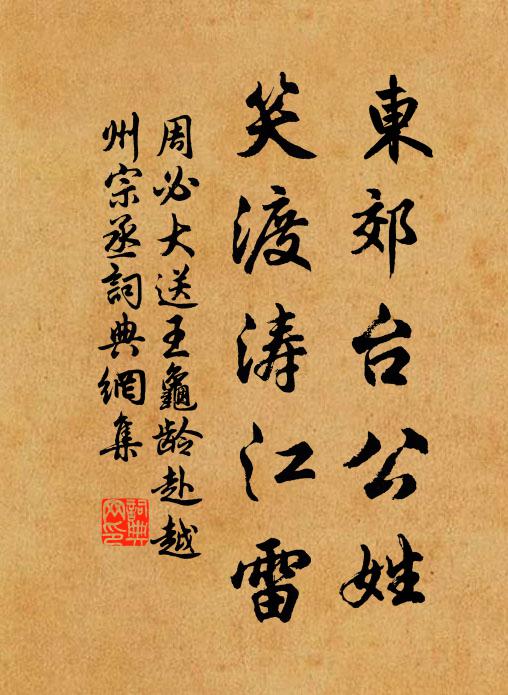 東郊台公姓
笑渡涛江雷
周必大送王龜龄赴越
州宗丞詞典網集
詞典网印